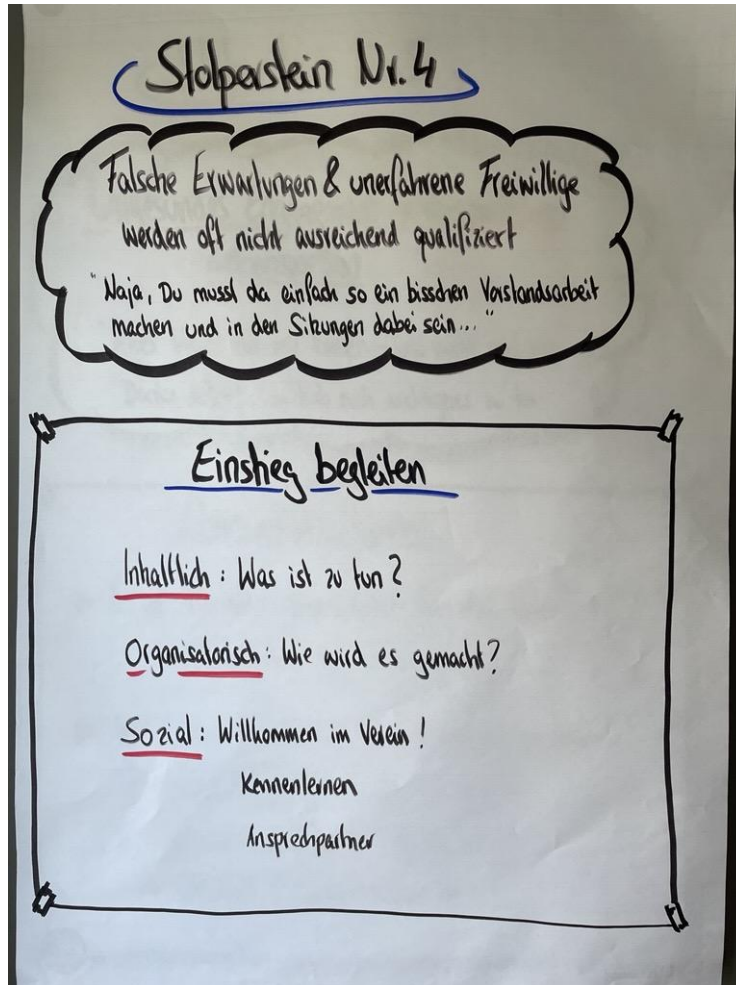 Stolperstein Nr. 4
Falsche Erwartungen & unerfahrene Freiwillige
werden oft nicht ausreichend qualifiziert
"Naja, Du musst da einfach so ein bisschen Vorstandsarbeit
machen und in den Sitzungen dabei sein..."
Einstieg begleiten
Inhaltlich: Was ist zu tun?
Organisatorisch: Wie wird es gemacht?
Sozial: Willkommen im Verein!
Kennenlernen
Ansprechpartner